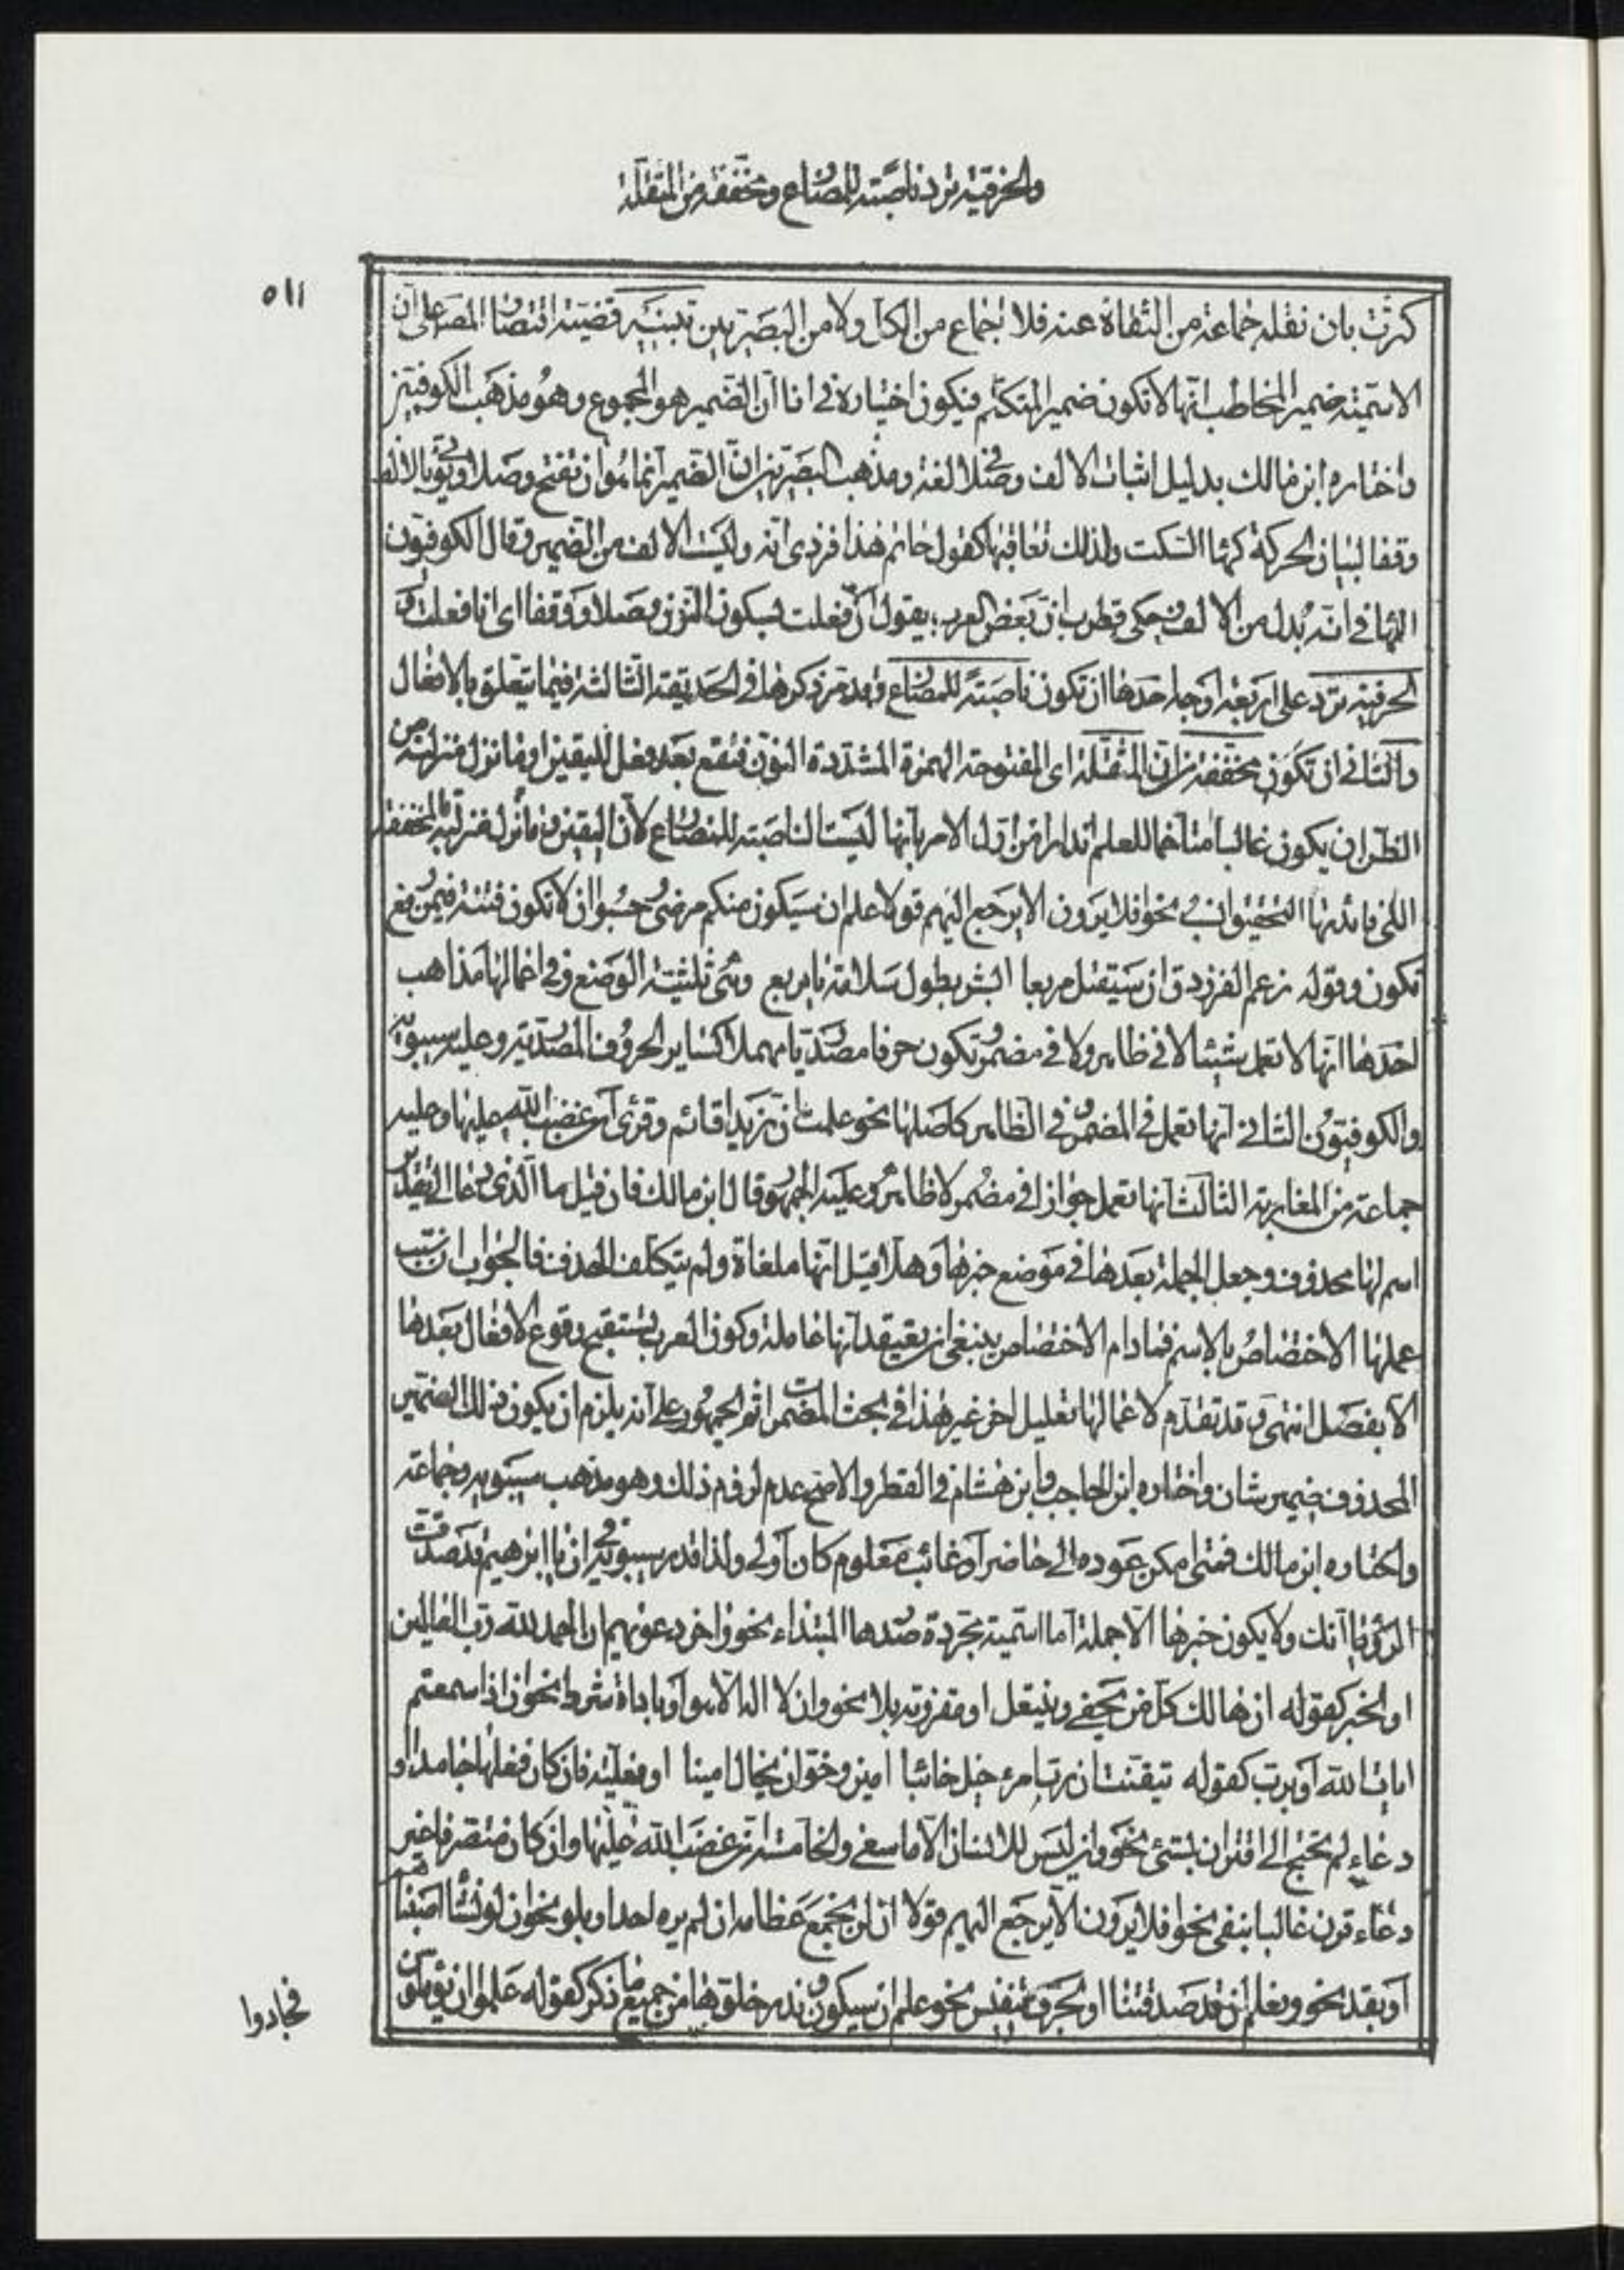 والحرفية ترد ناصبة للمضارع ومخففة من المثقلة
٥١١
كررت بان نقله جماعة من الثقاة عنه فلا اجماع من الكل ولا من البصريين تنبيه قضية اقتصار المص على ان
الاسمية ضمير المخاطب انها لا تكون ضمير المتكلم فيكون اختياره في انا ان الضمير هو المجموع وهو مذهب الكوفيين
واختاره ابن مالك بدليل اثبات الالف وصلا لغة ومذهب البصريين ان الضمير انما هو ان بفتح وصلا ويؤتى بالالف
وقفا لبيان الحركة كهاء السكت ولذلك تعاقبها كقول حاتم هذا فزدى انه وليست الالف من الضمير وقال الكوفيون
الهاء في انه بدل من الالف وحكى قطرب ان بعض العرب يقول ان فعلت بسكون النون وصلا ووقفا اى انا فعلت و
الحرفية ترد على اربعة اوجه احدها ان تكون ناصبة للمضارع وقد مر ذكرها في الحديقة الثالثة فيما يتعلق بالافعال
والثاني ان تكون مخففة من ان المثقلة اى المفتوحة الهمزة المشددة النون فتقع بعد فعل اليقين او ما نزل منزلته من
الظن ان يكون غالبا متاخما للعلم ايذانا من اول الامر بانها ليست الناصبة للمضارع لان اليقين وما نزل منزلته بالمخففة
اللتي فائدتها التحقيق انسب نحو افلا يرون الا يرجع اليهم قولا علم ان سيكون منكم مرضى وحسبوا ان لا تكون فتنة فيمن رفع
تكون وقوله زعم الفرزدق ان سيقتل مربعا ابشر بطول سلامة يا مربع وهى ثلثية الوضع وفي اعمالها مذاهب
احدها انها لا تعمل شيئا لا في ظاهر ولا في مضمر وتكون حرفا مصدريا مهملا كساير الحروف المصدرية وعليه سيبويه
والكوفيون الثاني انها تعمل في المضمر وفي الظاهر كاصلها نحو علمت ان زيدا قائم وقرئ ان غضب الله عليها وعليه
جماعة من المغاربة الثالث انها تعمل جوازا في مضمر لا ظاهر وعليه الجمهور قال ابن مالك فان قيل ما الذى دعا الى تقدير
اسم لها محذوف وجعل الجملة بعدها في موضع خبرها وهلا قيل انها ملغاة ولم يتكلف الحذف فالجواب ان سبب
عملها الاختصاص بالاسم فما دام الاختصاص ينبغي ان يعتقد انها عاملة وكون العرب يستقبح وقوع الافعال بعدها
الا بفصل انتهى وقد تقدم لاعمالها تعليل اخر غير هذا في بحث المضمرات ثم الجمهور على انه يلزم ان يكون ذلك الضمير
المحذوف ضمير شان واختاره ابن الحاجب وابن هشام في القطر والاصح عدم لزوم ذلك وهو مذهب سيبويه وجماعة
واختاره ابن مالك فمتى امكن عوده الى حاضر او غائب معلوم كان اولى ولذا قدر سيبويه في ان يا ابراهيم قد صدقت
الرؤيا انك ولا يكون خبرها الا جملة اما اسمية مجردة صدرها المبتداء نحو واخر دعويهم ان الحمد لله رب العالمين
او الخبر كقوله ان هالك كل من يحفى وينتعل او مقرونة بلا نحو وان لا اله الا هو او باداة شرط نحو ان اذا سمعتم
ايات الله او برب كقوله تيقنت ان رب امرء خيل خائنا امين وخوان يخال امينا او فعلية فان كان فعلها جامدا و
دعاء لم تحتج الى اقتران بشئ نحو وان ليس للانسان الا ما سعى والخامسة ان غضب الله عليها وان كان متصرفا غير
دعاء قرن غالبا بنفى نحو افلا يرون الا يرجع اليهم قولا ان لن نجمع عظامه ان لم يره احد او بلو نحو ان لو نشأ اصبناهم
او بقد نحو ونعلم ان قد صدقتنا او بحرف تنفيس نحو علم ان سيكون وندر خلوها من جميع ما ذكر كقوله علموا ان يؤملون
فجادوا